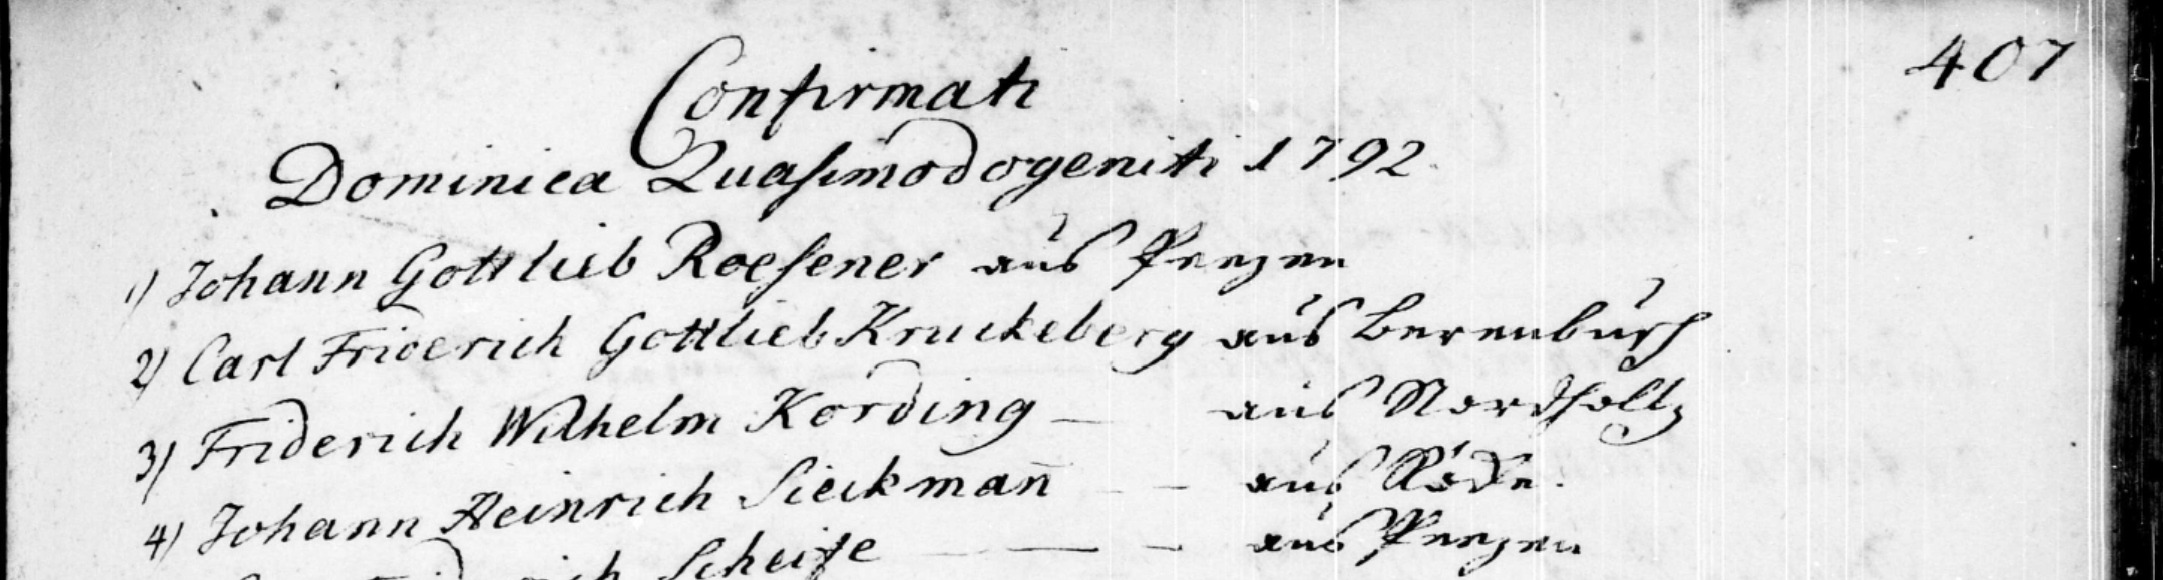 407
Confirmati
Dominica Quasimodogeniti 1792.
1) Johann Gottlieb Roesener aus Peezen
2) Carl Friderich Gottlieb Kruckeberg aus Berenbusch
3) Friderich Wilhelm Kording — aus Nordholtz
4) Johann Heinrich Sieckman̄ – – aus Röke.
Scheife – — – aus Peezen